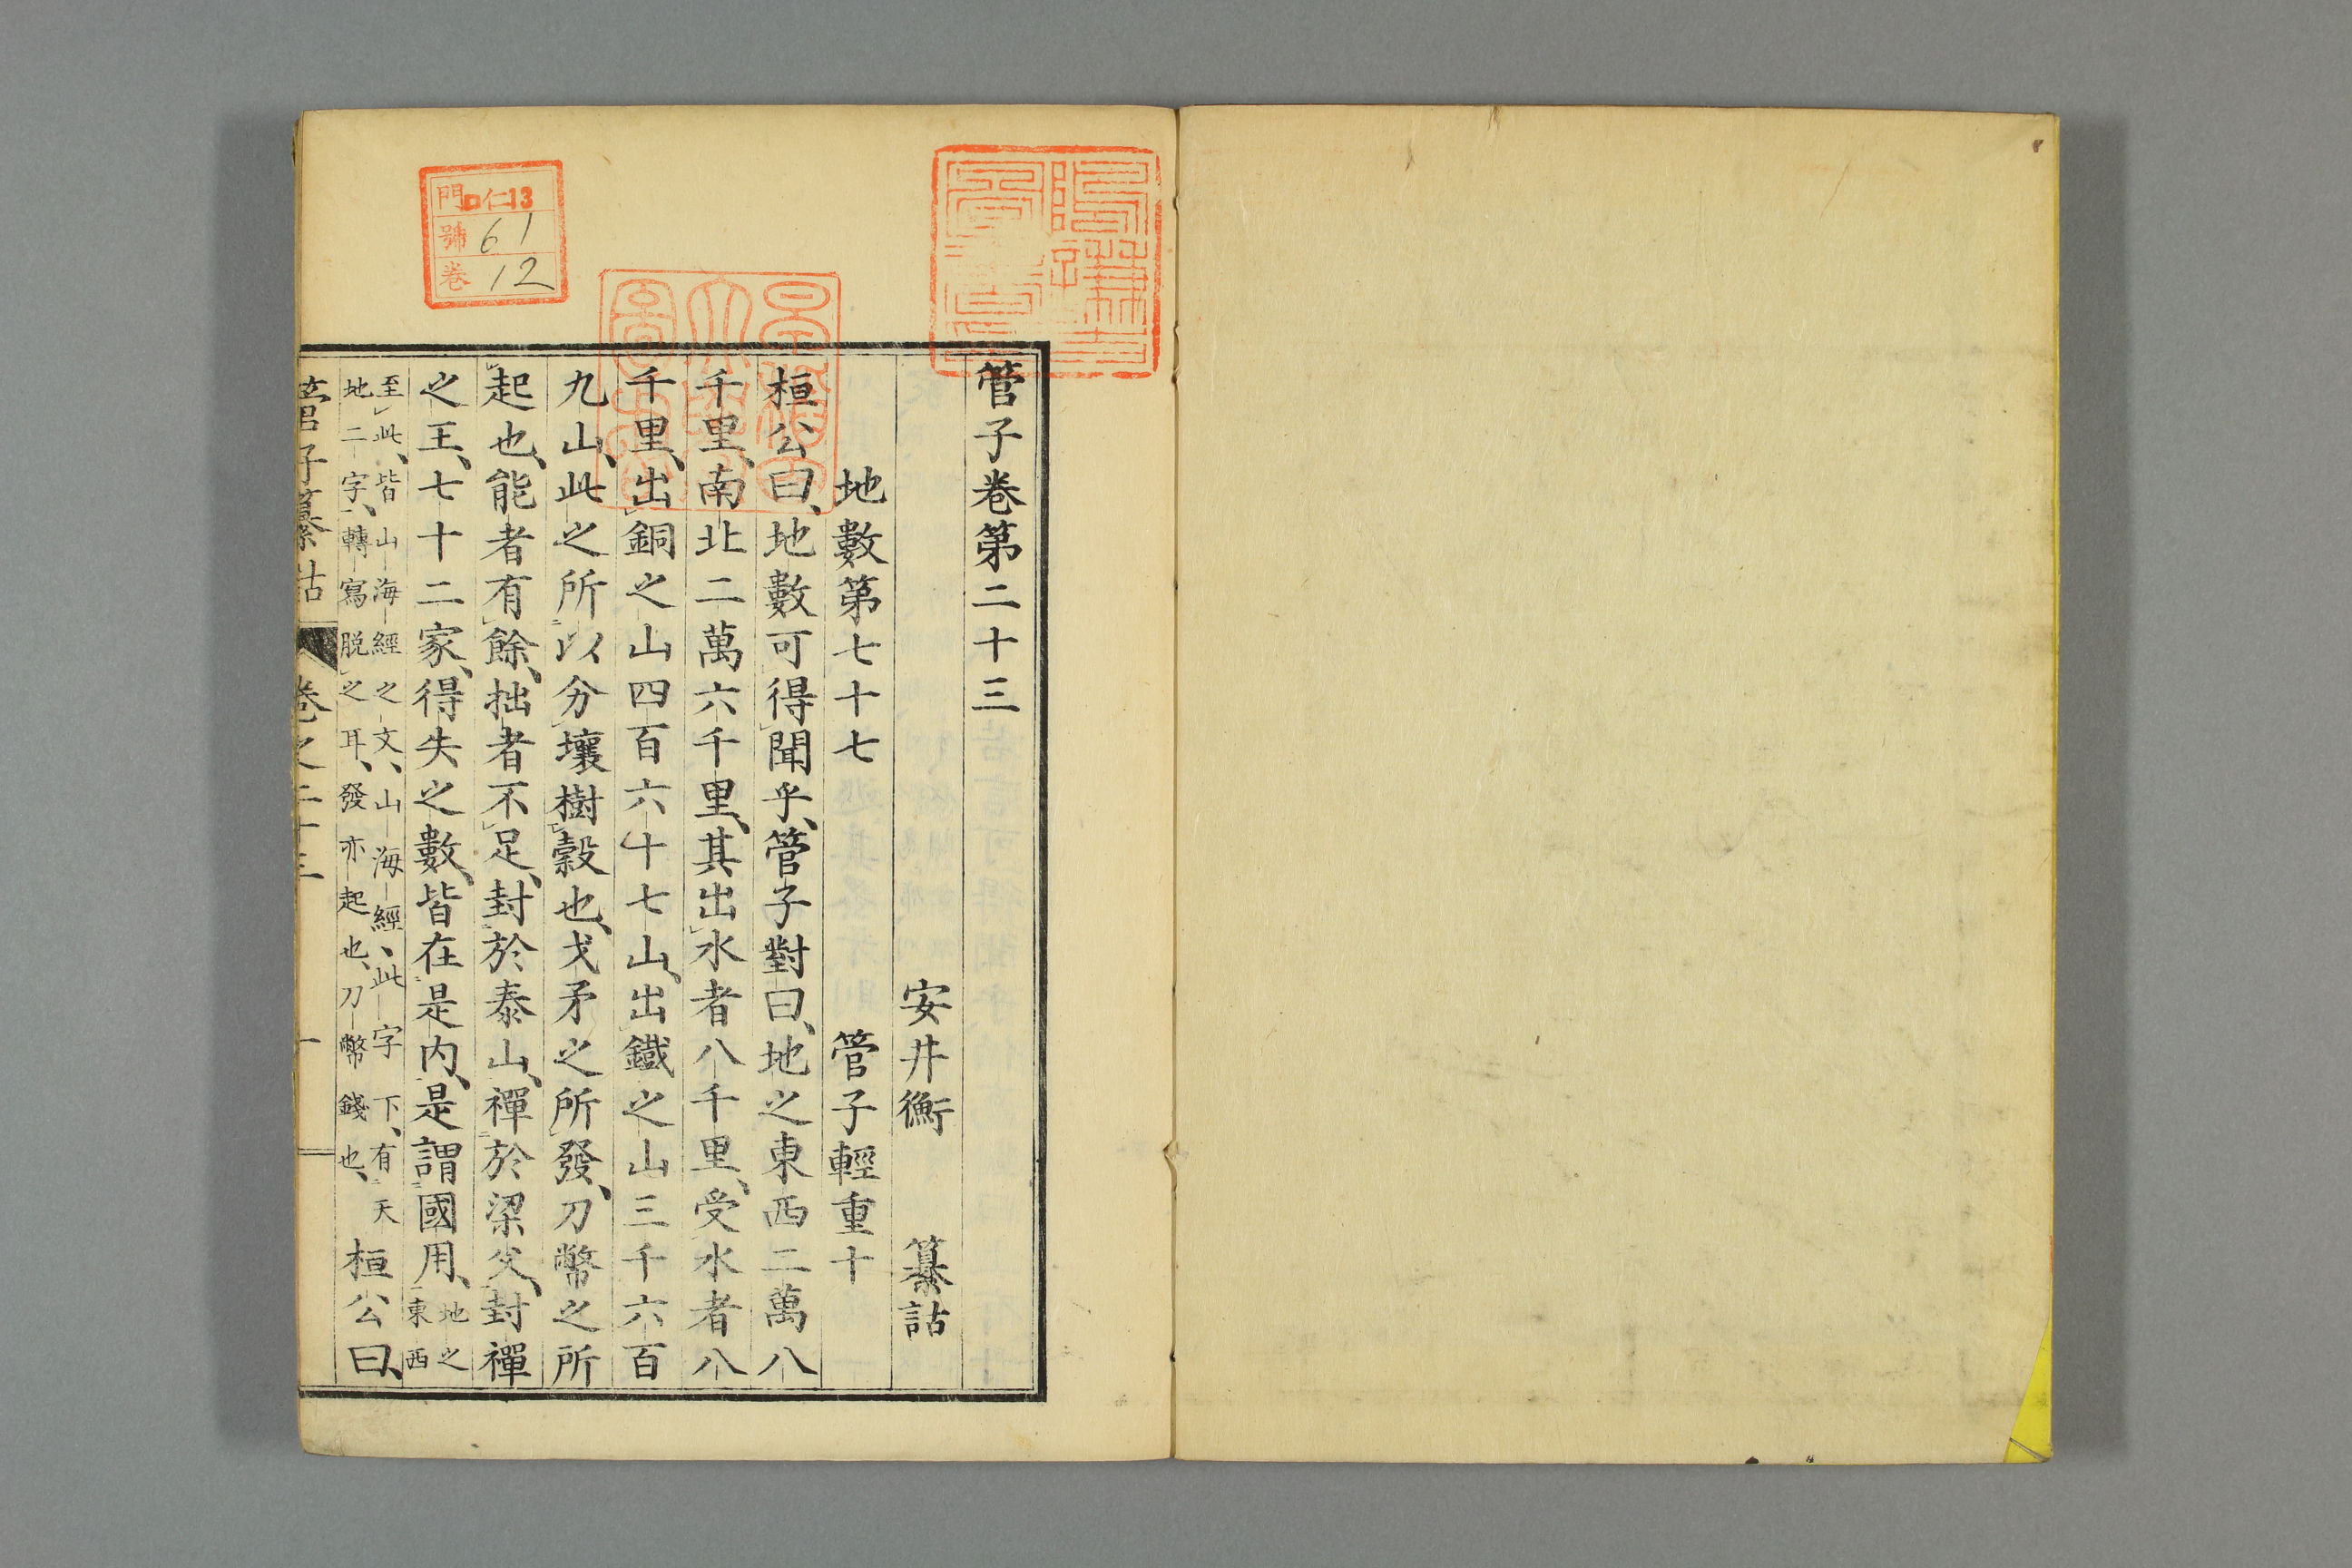 管子卷第二十三
安井衡　纂詁
地數第七十七　管子輕重十
桓公曰、地數可得聞乎、管子對曰、地之東西二萬八
千里、南北二萬六千里、其出水者八千里、受水者八
千里、出銅之山四百六十七山、出鐵之山三千六百
九山、此之所以分壤樹穀也、戈矛之所發、刀幣之所
起也、能者有餘、拙者不足、封於泰山、禪於梁父、封禪
之王、七十二家、得失之數、皆在是内、是謂國用、地之
東西
至此、皆山海經之文、山海經、此字下、有天
地二字、轉寫脱之耳、發亦起也、刀幣錢也、
桓公曰、
管子纂詁　卷之二十三　一
門 ロ仁13
號 61
卷 12